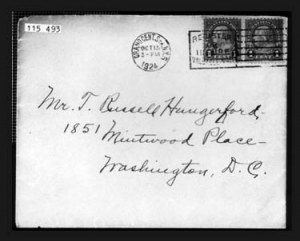 115 493
GRAND CENT. STA. N.Y.
OCT 15
1924
Mr. T. Russell Hungerford,
1851
Mintwood Place-
Washington, D.C.